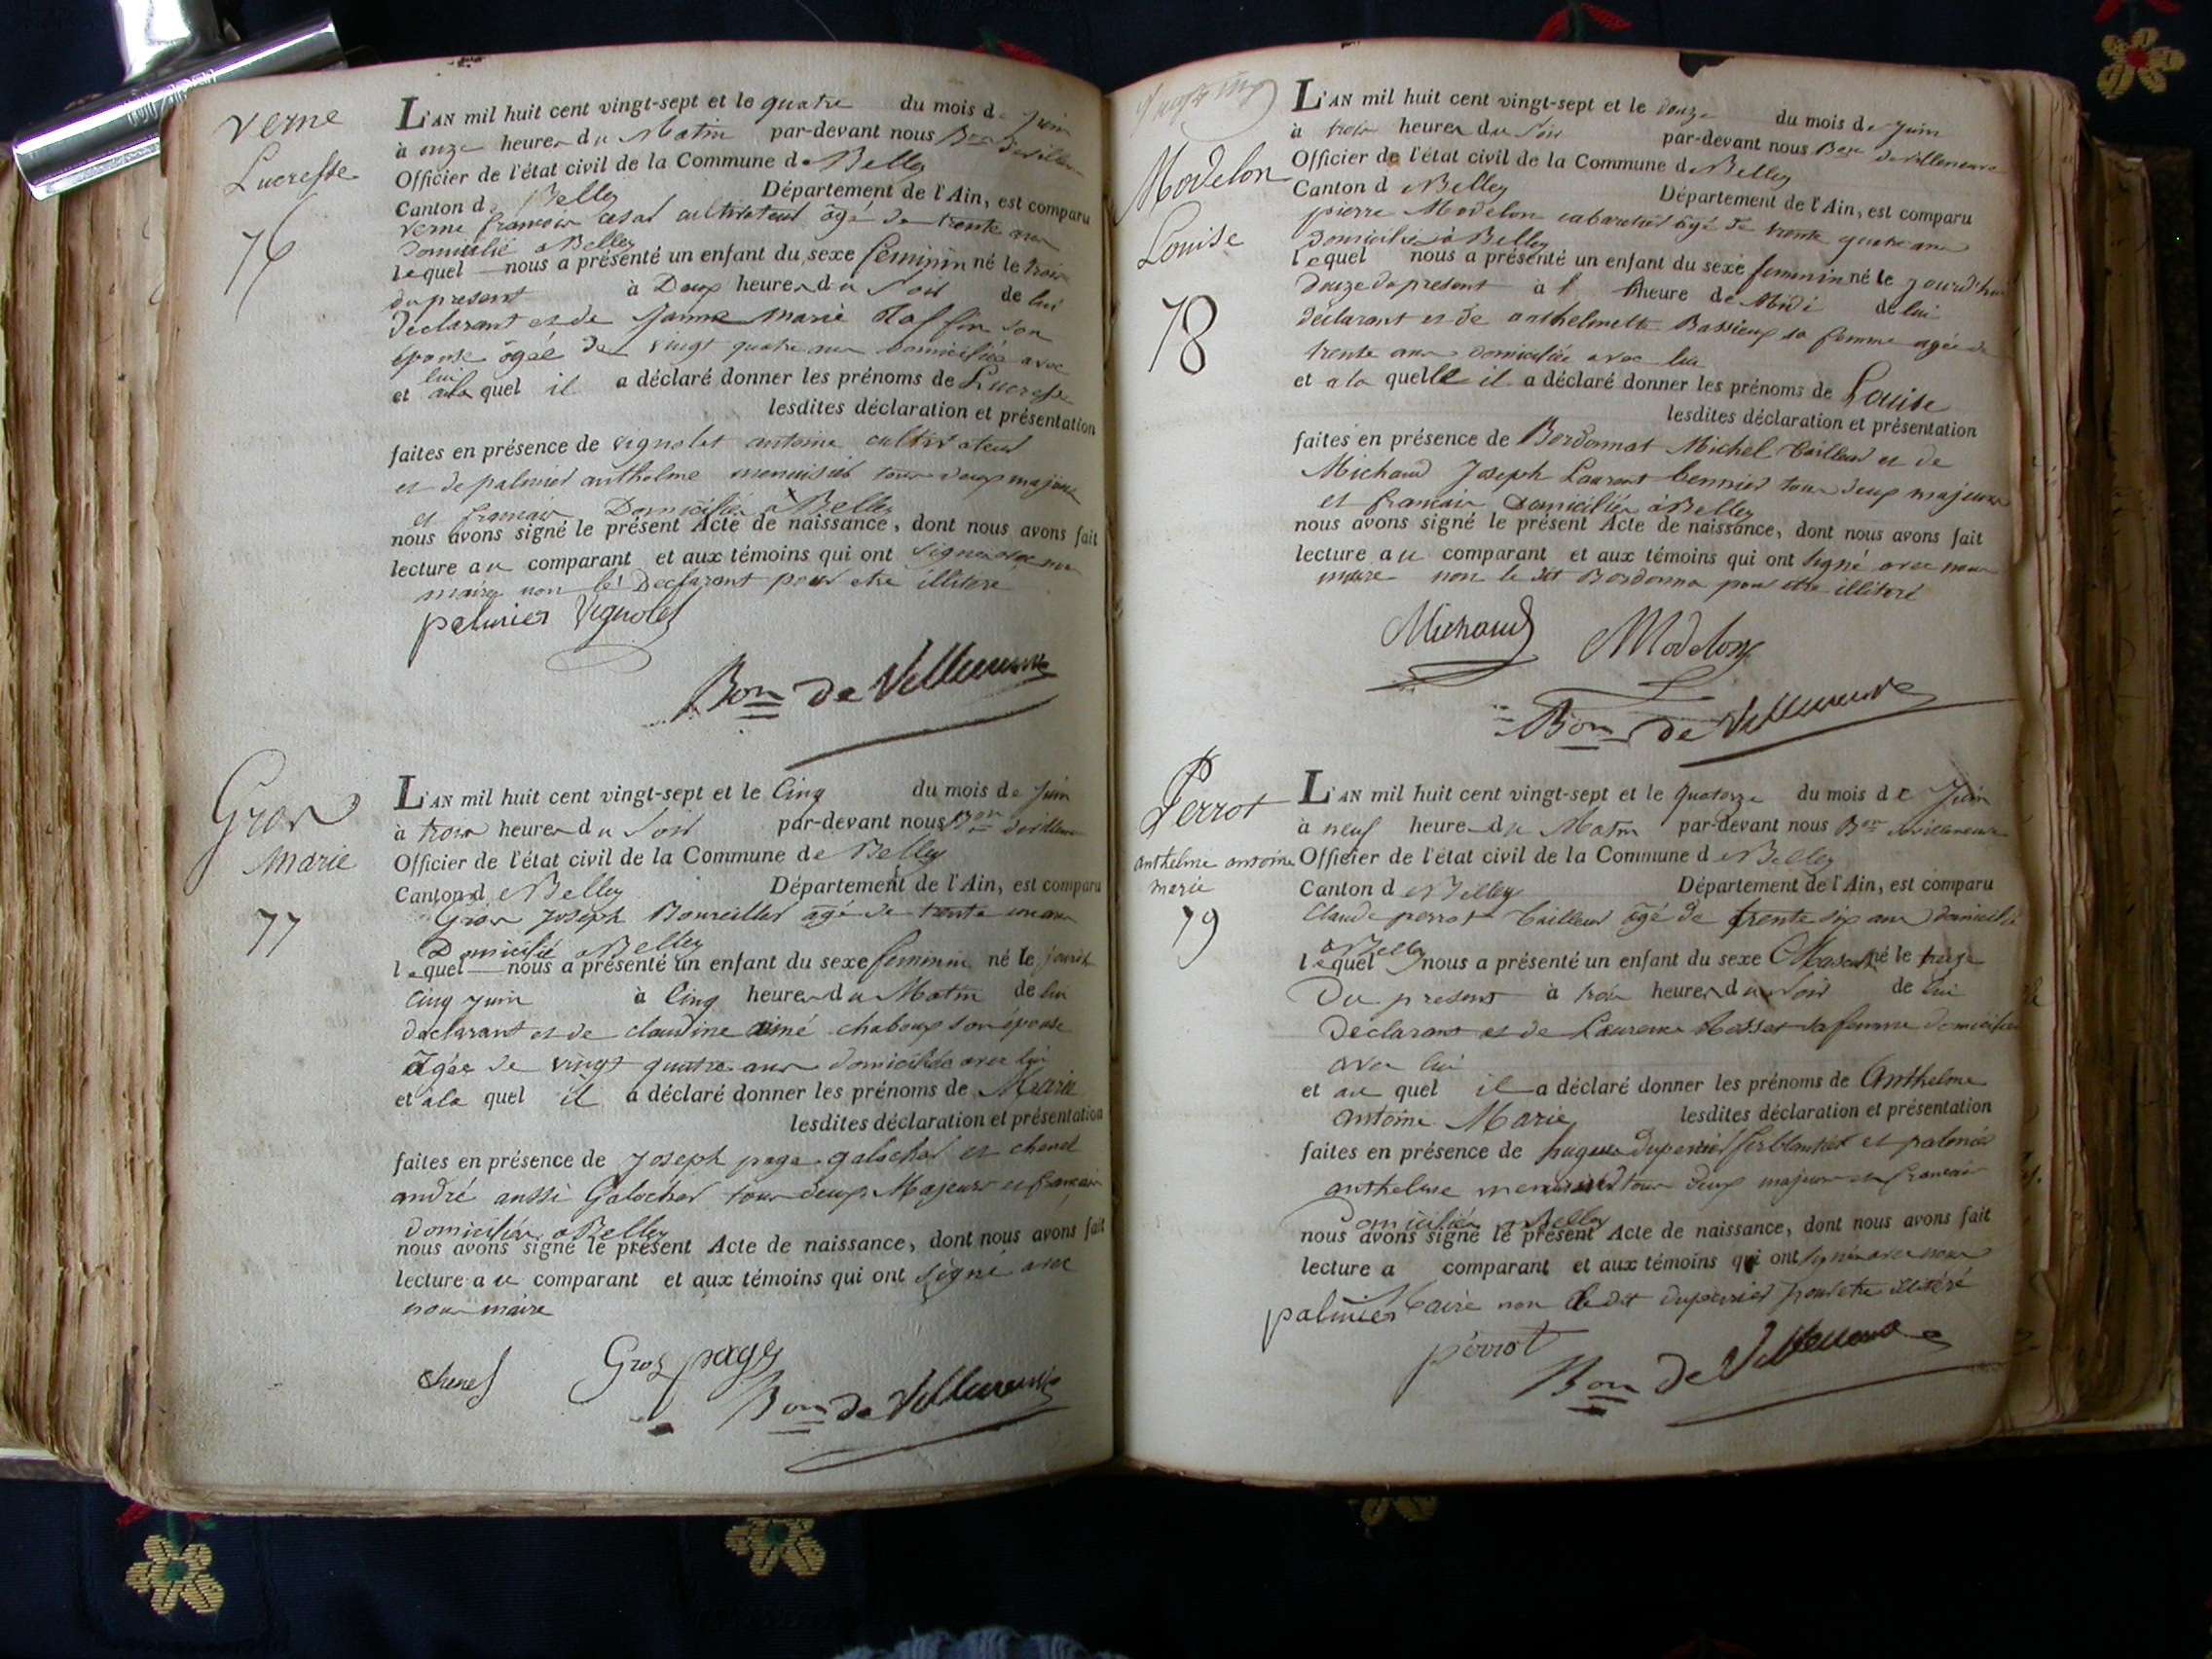 verne
Lucresse
76
L'AN mil huit cent vingt-sept et le quatre du mois de Juin
à onze heures du Matin par-devant nous Bon
Officier de l'état civil de la Commune de Belley
Canton d Belley Département de l'Ain, est comparu
verne francois cesar cultivateur âgé de trente ans
Domicilié a Belley
lequel nous a présenté un enfant du sexe feminin né le trois
du present à Deux heures du Soir de lui
declarant et de Janne marie son
épouse âgée de vingt quatre ans domiciliée avec
lui
et a la quel il a déclaré donner les prénoms de Lucresse
lesdites déclaration et présentation
faites en présence de vignolet antoine cultivateur
et de palmier anthelme menuisier tous deux majeurs
et francais Domiciliés a Belley
nous avons signé le présent Acte de naissance, dont nous avons fait
lecture au comparant et aux témoins qui ont signé avec nous
maire non le Declarant pour etre illitéré
palmier Vignolet
Bon de Villeneuve
Gros
Marie
77
L'AN mil huit cent vingt-sept et le Cinq du mois de Juin
à trois heures du Soir par-devant nous Bon
Officier de l'état civil de la Commune de Belley
Canton d Belley Département de l'Ain, est comparu
Gros Joseph âgé de trente ans
Domicilié a Belley
lequel nous a présenté un enfant du sexe feminin né le
cinq juin à Cinq heures du Matin de lui
déclarant et de claudine aimé chaboux son épouse
âgée de vingt quatre ans domiciliée avec lui
et a la quel il a déclaré donner les prénoms de Marie
lesdites déclaration et présentation
faites en présence de Joseph page galocher et chenel
andré aussi Galocher tous deux Majeurs et francais
domiciliés a Belley
nous avons signé le présent Acte de naissance, dont nous avons fait
lecture au comparant et aux témoins qui ont signé avec
nous maire
chenel Gros page
Bon de Villeneuve
Modelon
Louise
78
L'AN mil huit cent vingt-sept et le douze du mois de Juin
à trois heures du Soir par-devant nous Bon de villeneuve
Officier de l'état civil de la Commune de Belley
Canton d Belley Département de l'Ain, est comparu
pierre Modelon cabaretier âgé de trente quatre ans
domicilié à Belley
lequel nous a présenté un enfant du sexe feminin né le
Douze du present à l heure de Midi de lui
déclarant et de anthelmette Bassieux sa femme agée de
trente ans domiciliée avec lui
et a la quelle il a déclaré donner les prénoms de Louise
lesdites déclaration et présentation
faites en présence de Bordonnat Michel tailleur et de
Michaud Joseph Laurent tous deux majeurs
et francais Domiciliés à Belley
nous avons signé le présent Acte de naissance, dont nous avons fait
lecture au comparant et aux témoins qui ont signé avec nous
maire non le dit Bordonna pour etre illitéré
Michaud Modelon
Bon de Villeneuve
Perrot
anthelme antoine
marie
79
L'AN mil huit cent vingt-sept et le quatorze du mois de Juin
à neuf heures du Matin par-devant nous Bon devilleneuve
Officier de l'état civil de la Commune d Belley
Canton d Belley Département de l'Ain, est comparu
Claude perrot tailleur âgé de trente six ans domicilié
a Belley
lequel nous a présenté un enfant du sexe Masculin né le treize
Du present à trois heures du Soir de lui
Declarant et de Laurence Rosset sa femme domiciliée
avec lui
et au quel il a déclaré donner les prénoms de Anthelme
antoine Marie lesdites déclaration et présentation
faites en présence de hugues duperier ferblantier et palmier
anthelme menuisier tous deux majeurs et francais
Domiciliés a Belley
nous avons signé le présent Acte de naissance, dont nous avons fait
lecture a comparant et aux témoins qui ont signé avec nous
maire non le dit duperier pour etre illitéré
palmier
perrot
Bon de Villeneuve